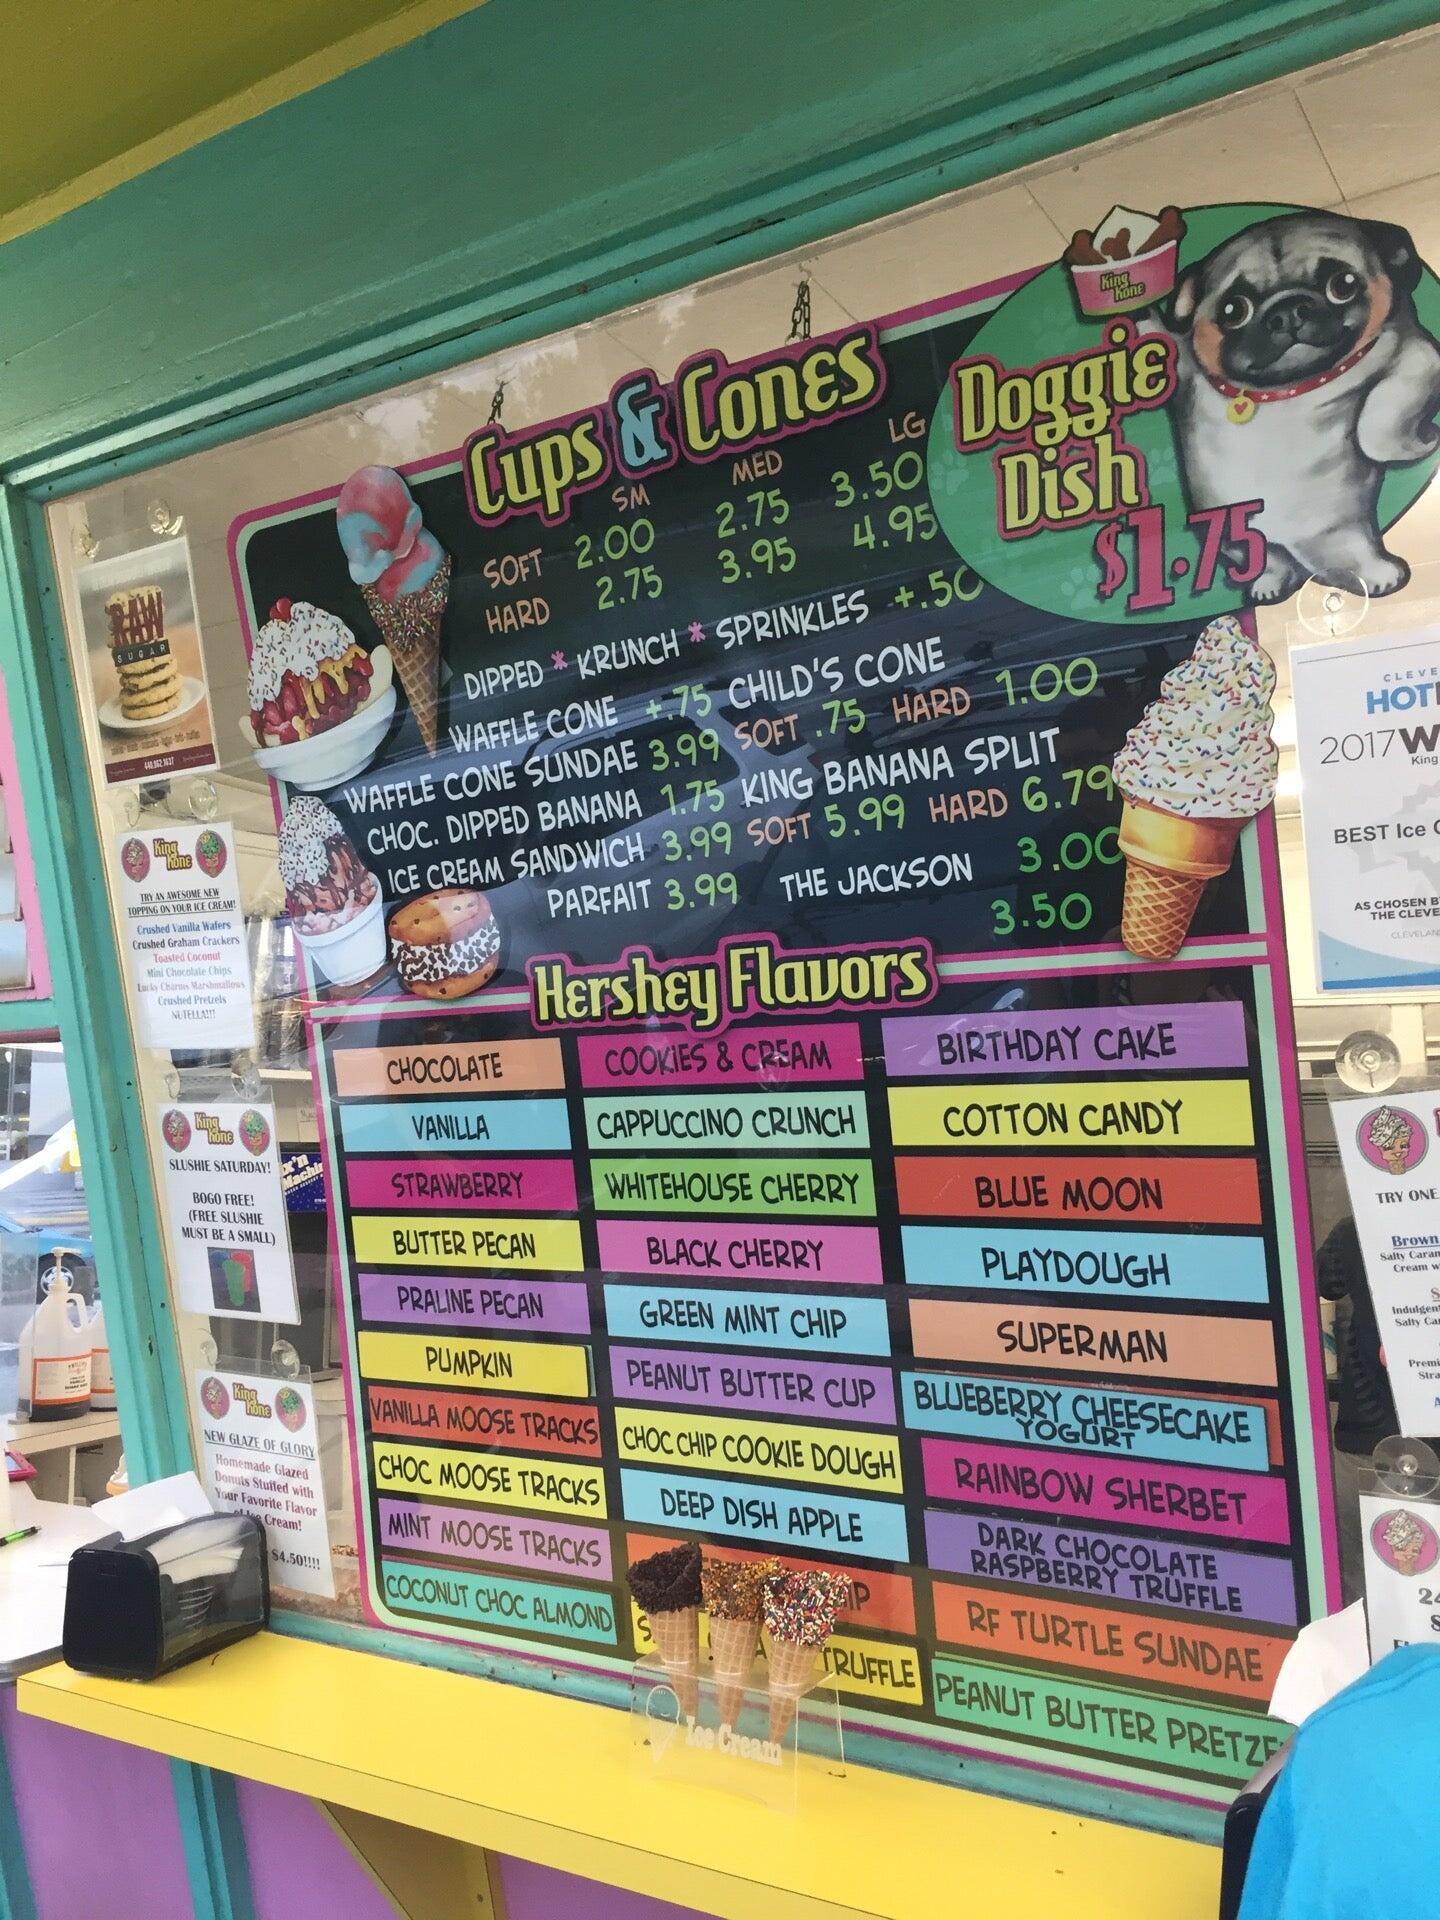 Cups & Cones
SM MED LG
SOFT 2.00 2.75 3.50
HARD 2.75 3.95 4.95
DIPPED * KRUNCH * SPRINKLES +.50
WAFFLE CONE +.75
WAFFLE CONE SUNDAE 3.99
CHOC. DIPPED BANANA 1.75
ICE CREAM SANDWICH 3.99
PARFAIT 3.99
CHILD'S CONE
SOFT .75 HARD 1.00
KING BANANA SPLIT
SOFT 5.99 HARD 6.79
THE JACKSON 3.00
3.50
King Kone
Doggie
Dish
$1.75
Hershey Flavors
CHOCOLATE
VANILLA
STRAWBERRY
BUTTER PECAN
PRALINE PECAN
PUMPKIN
VANILLA MOOSE TRACKS
CHOC MOOSE TRACKS
MINT MOOSE TRACKS
COCONUT CHOC ALMOND
COOKIES & CREAM
CAPPUCCINO CRUNCH
WHITEHOUSE CHERRY
BLACK CHERRY
GREEN MINT CHIP
PEANUT BUTTER CUP
CHOC CHIP COOKIE DOUGH
DEEP DISH APPLE
TRUFFLE
BIRTHDAY CAKE
COTTON CANDY
BLUE MOON
PLAYDOUGH
SUPERMAN
BLUEBERRY CHEESECAKE
YOGURT
RAINBOW SHERBET
DARK CHOCOLATE
RASPBERRY TRUFFLE
RF TURTLE SUNDAE
PEANUT BUTTER PRETZE
Ice Cream
RAW
SUGAR
440.862.1637
King Kone
TRY AN AWESOME NEW
TOPPING ON YOUR ICE CREAM!
Crushed Vanilla Wafers
Crushed Graham Crackers
Toasted Coconut
Mini Chocolate Chips
Lucky Charms Marshmallows
Crushed Pretzels
NUTELLA!!!
King Kone
SLUSHIE SATURDAY!
BOGO FREE!
(FREE SLUSHIE
MUST BE A SMALL)
King Kone
NEW GLAZE OF GLORY
Homemade Glazed
Donuts Stuffed with
Your Favorite Flavor
of Ice Cream!
$4.50!!!!
CLEVE
HOT
2017 W
King
BEST Ice C
AS CHOSEN B
THE CLEVE
CLEVELAN
TRY ONE
Brown
Salty Caram
Cream w
Indulgent
Salty Car
Premi
Stra
24